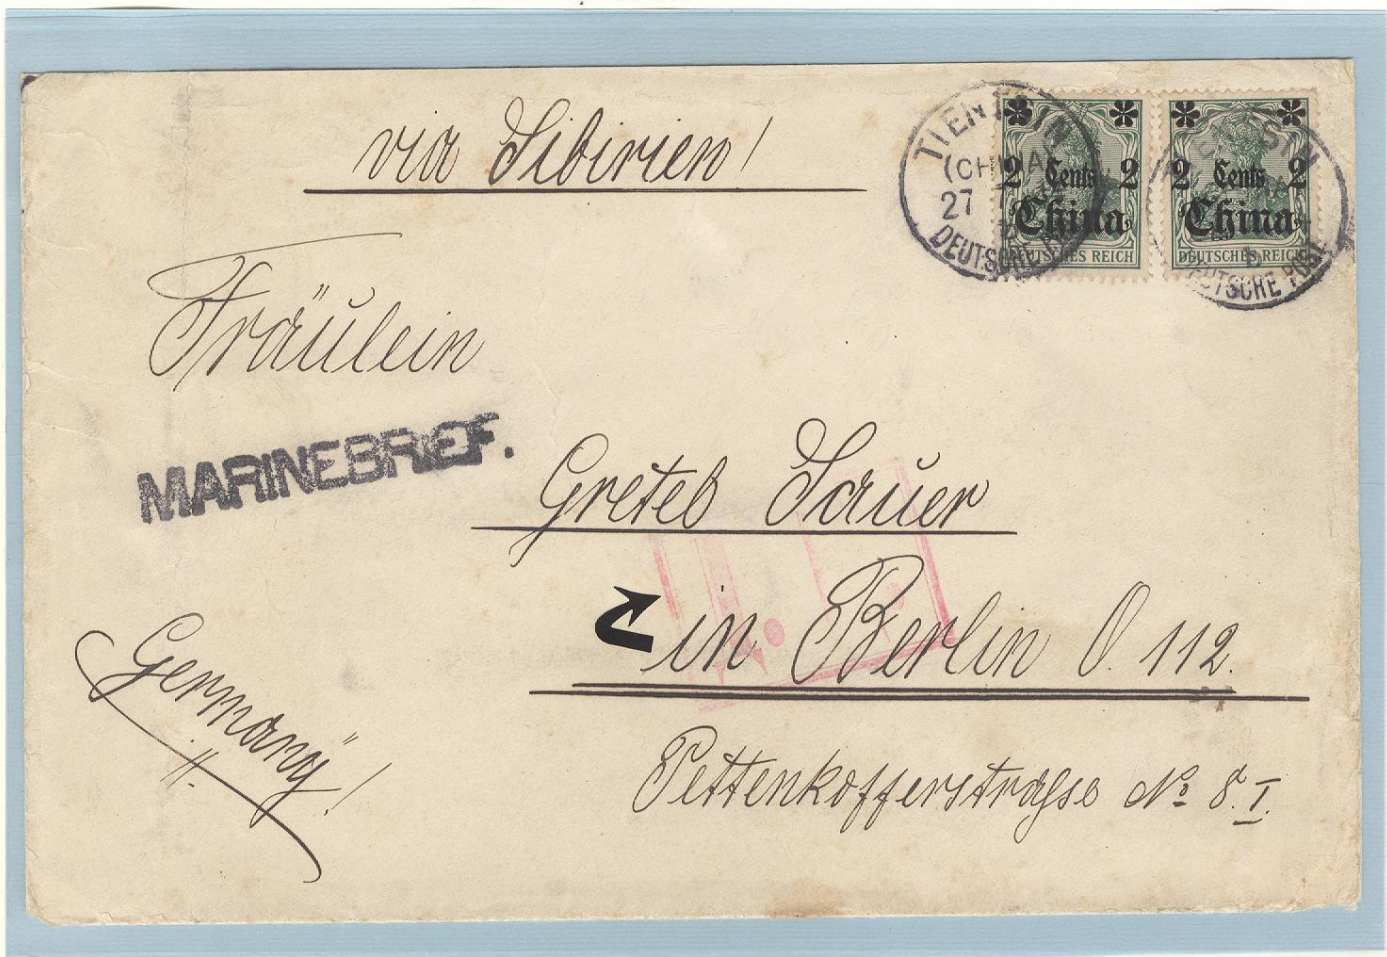 via Sibirien!
TIENTSIN
(CHINA)
27
DEUTSCHE
2 Cents 2
China
DEUTSCHES REICH
2 Cents 2
China
DEUTSCHES REICH
TIENTSIN
DEUTSCHE POST
Fräulein
MARINEBRIEF.
Gretel Sauer
in Berlin O. 112.
Germany!
Pettenkofferstrasse No 8. I.